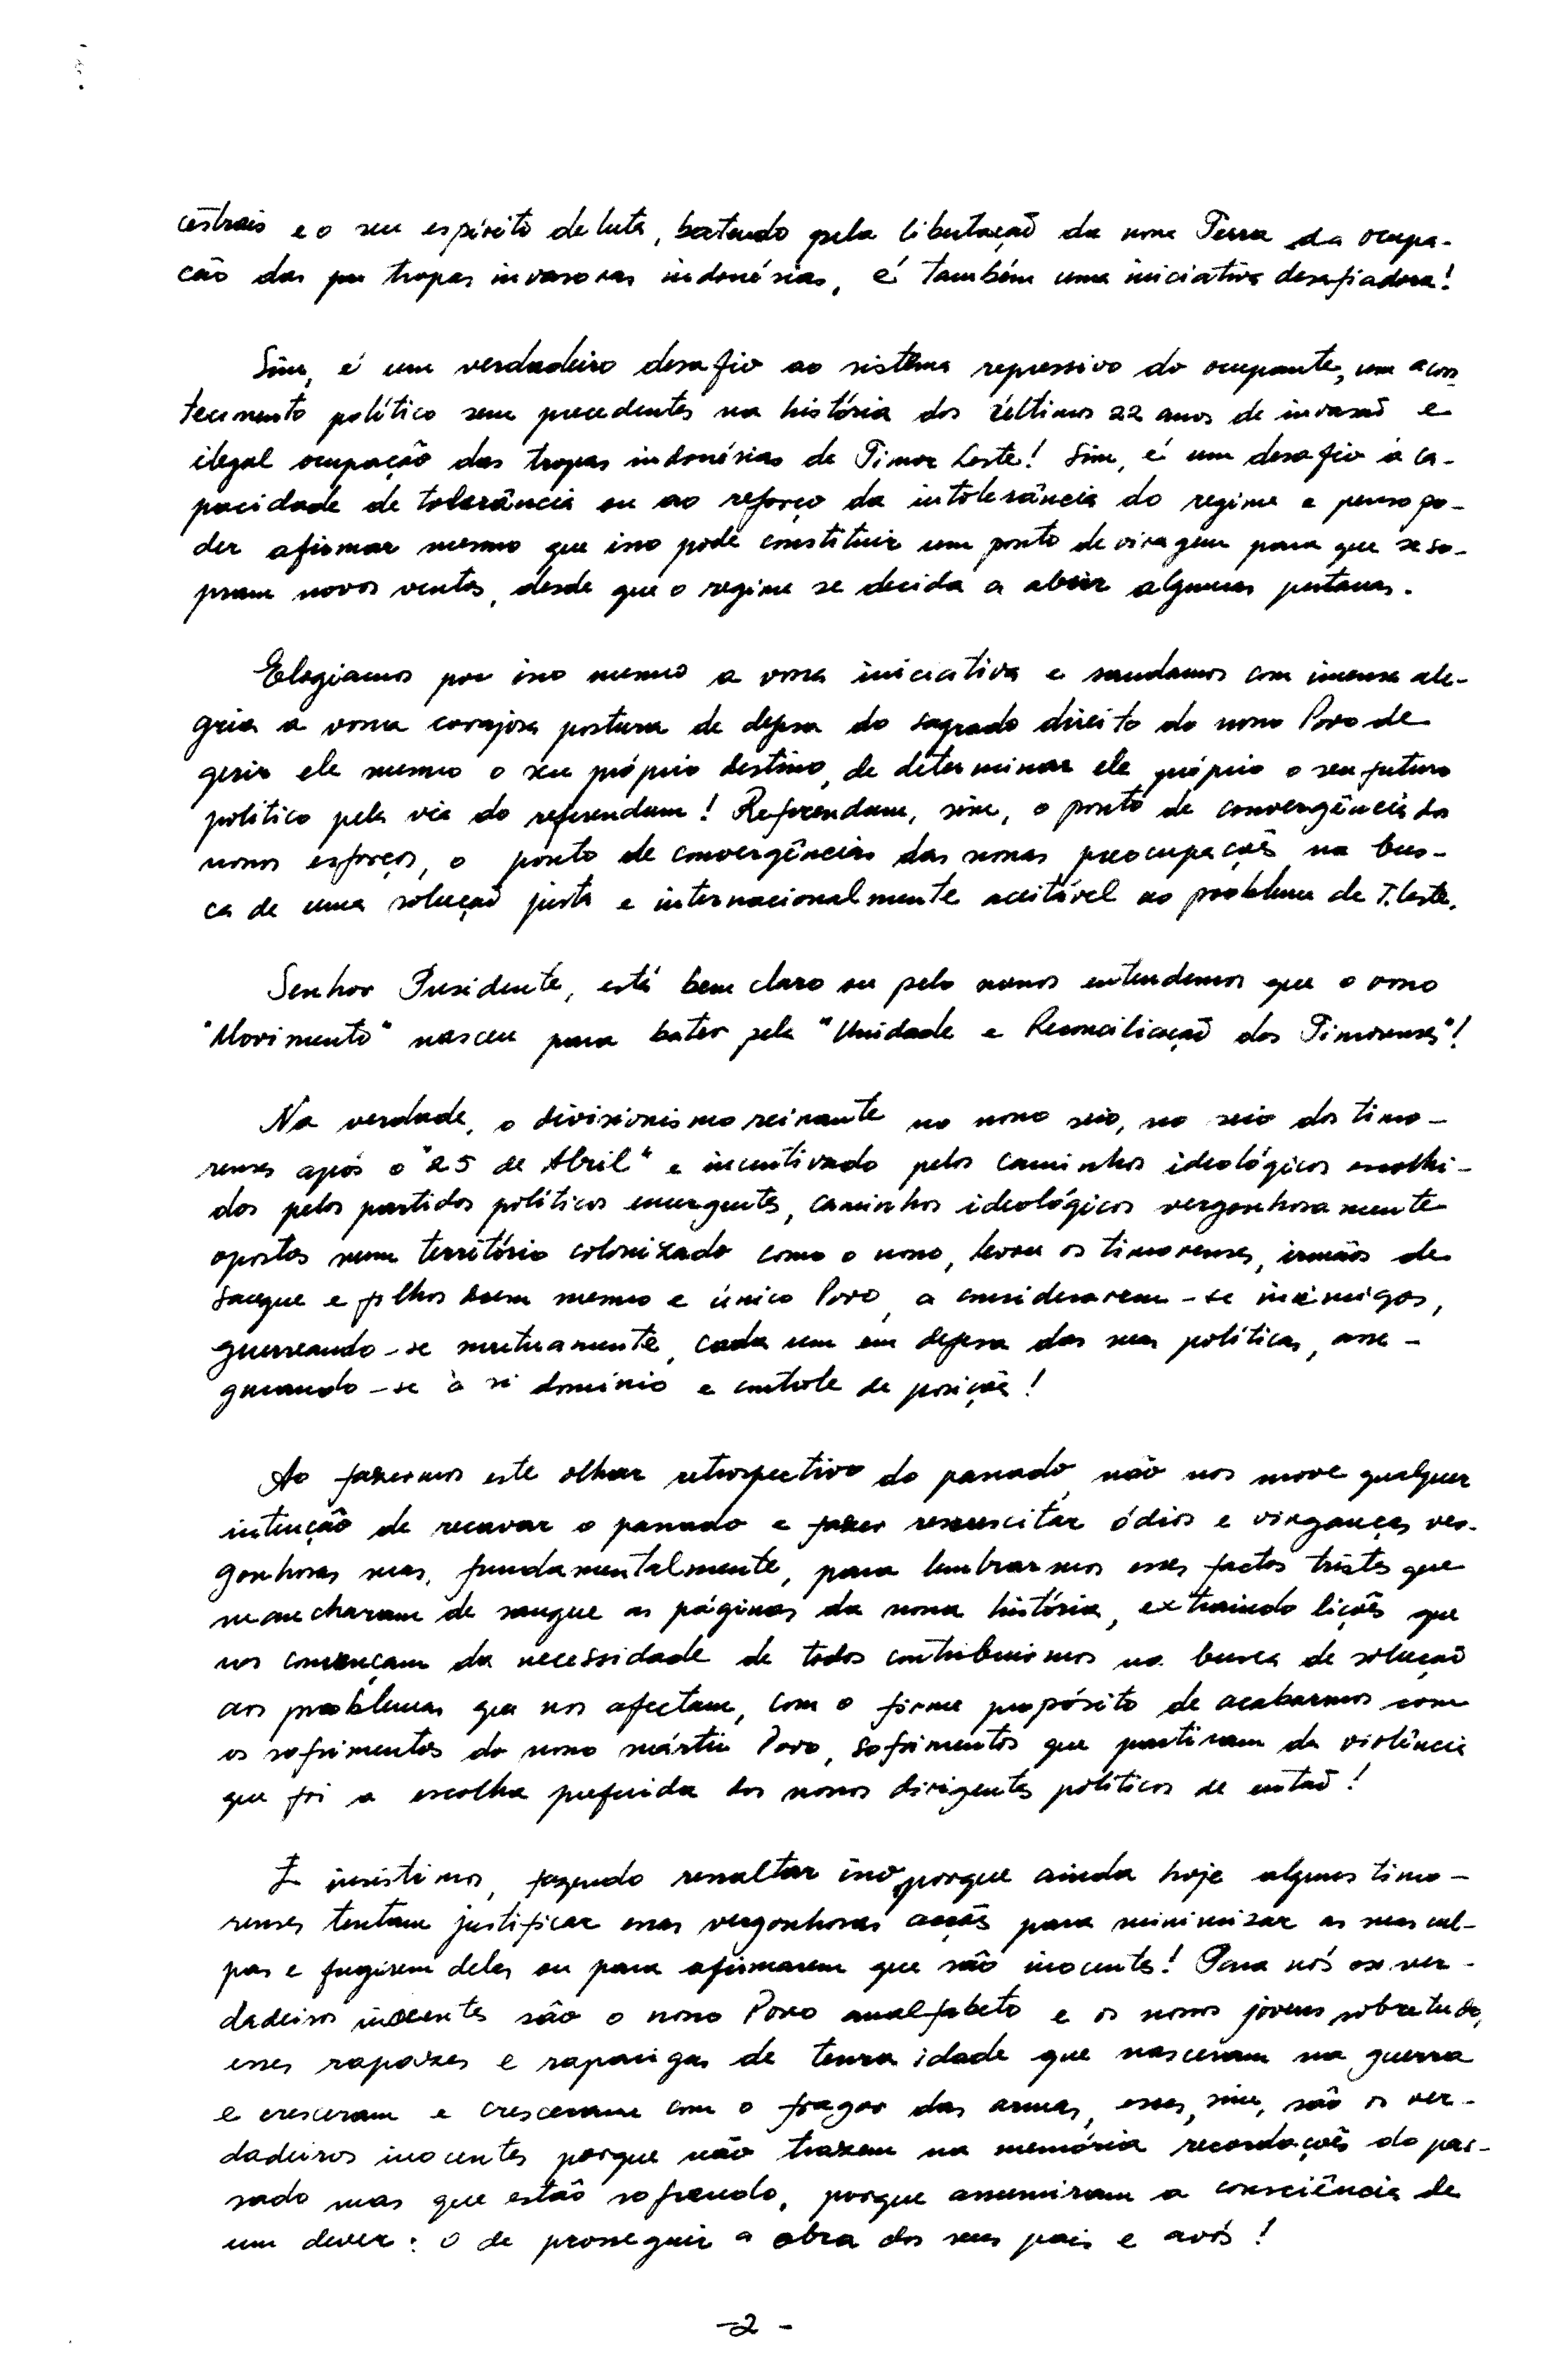 cestrais e o seu espírito de luta, batendo pela libertação da nossa Terra da ocupa-
ção das tropas invasoras indonésias, é também uma iniciativa desafiadora!
Sim, é um verdadeiro desafio ao sistema repressivo do ocupante, um acon-
tecimento político sem precedentes na história dos últimos 22 anos de invasão e
ilegal ocupação das tropas indonésias de Timor Leste! Sim, é um desafio à ca-
pacidade de tolerância ou ao reforço da intolerância do regime e penso po-
der afirmar mesmo que isso pode constituir um ponto de viragem para que se so-
pram novos ventos, desde que o regime se decida a abrir algumas pestanas.
Elogiamos por isso mesmo a vossa iniciativa e saudamos com imensa ale-
gria a vossa corajosa postura de defesa do sagrado direito do nosso Povo de
gerir ele mesmo o seu próprio destino, de determinar ele próprio o seu futuro
político pela via do referendum! Referendum, sim, o ponto de convergência dos
nossos esforços, o ponto de convergências das nossas preocupações na bus-
ca de uma solução justa e internacionalmente aceitável ao problema de T. Leste.
Senhor Presidente, está bem claro ou pelo menos entendemos que o vosso
"Movimento" nasceu para bater pela "Unidade e Reconciliação dos Timorenses"!
Na verdade, o divisionismo reinante no nosso seio, no seio dos timo-
renses após o "25 de Abril" e incentivado pelos caminhos ideológicos escolhi-
dos pelos partidos políticos emergentes, caminhos ideológicos vergonhosamente
opostos num território colonizado como o nosso, levou os timorenses, irmãos de
sangue e filhos dum mesmo e único Povo, a considerarem-se inimigos,
guerreando-se mutuamente, cada um em defesa das suas políticas, asse-
gurando-se à si domínio e controle de posições!
Ao fazermos este olhar retrospectivo do passado, não nos move qualquer
intenção de recavar o passado e fazer ressuscitar ódios e vinganças ver-
gonhosas mas, fundamentalmente, para lembrarmos esses factos tristes que
mancharam de sangue as páginas da nossa história, extraindo lições que
nos convençam da necessidade de todos contribuirmos na busca de solução
aos problemas que nos afectam, com o firme propósito de acabarmos com
os sofrimentos do nosso mártir Povo, sofrimentos que partiram da violência
que foi a escolha preferida dos nossos dirigentes políticos de então!
E insistimos, fazendo ressaltar isso, porque ainda hoje alguns timo-
renses tentam justificar essas vergonhosas acções para minimizar as suas cul-
pas e fugirem delas ou para afirmarem que são inocentes! Para nós os ver-
dadeiros inocentes são o nosso Povo analfabeto e os nossos jovens sobretudo,
esses rapazes e raparigas de tenra idade que nasceram na guerra
e cresceram e cresceram com o fragor das armas, esses, sim, são os ver-
dadeiros inocentes porque não trazem na memória recordações do pas-
sado mas que estão sofrendo, porque assumiram a consciência de
um dever: o de prosseguir a obra dos seus pais e avós!
-2-